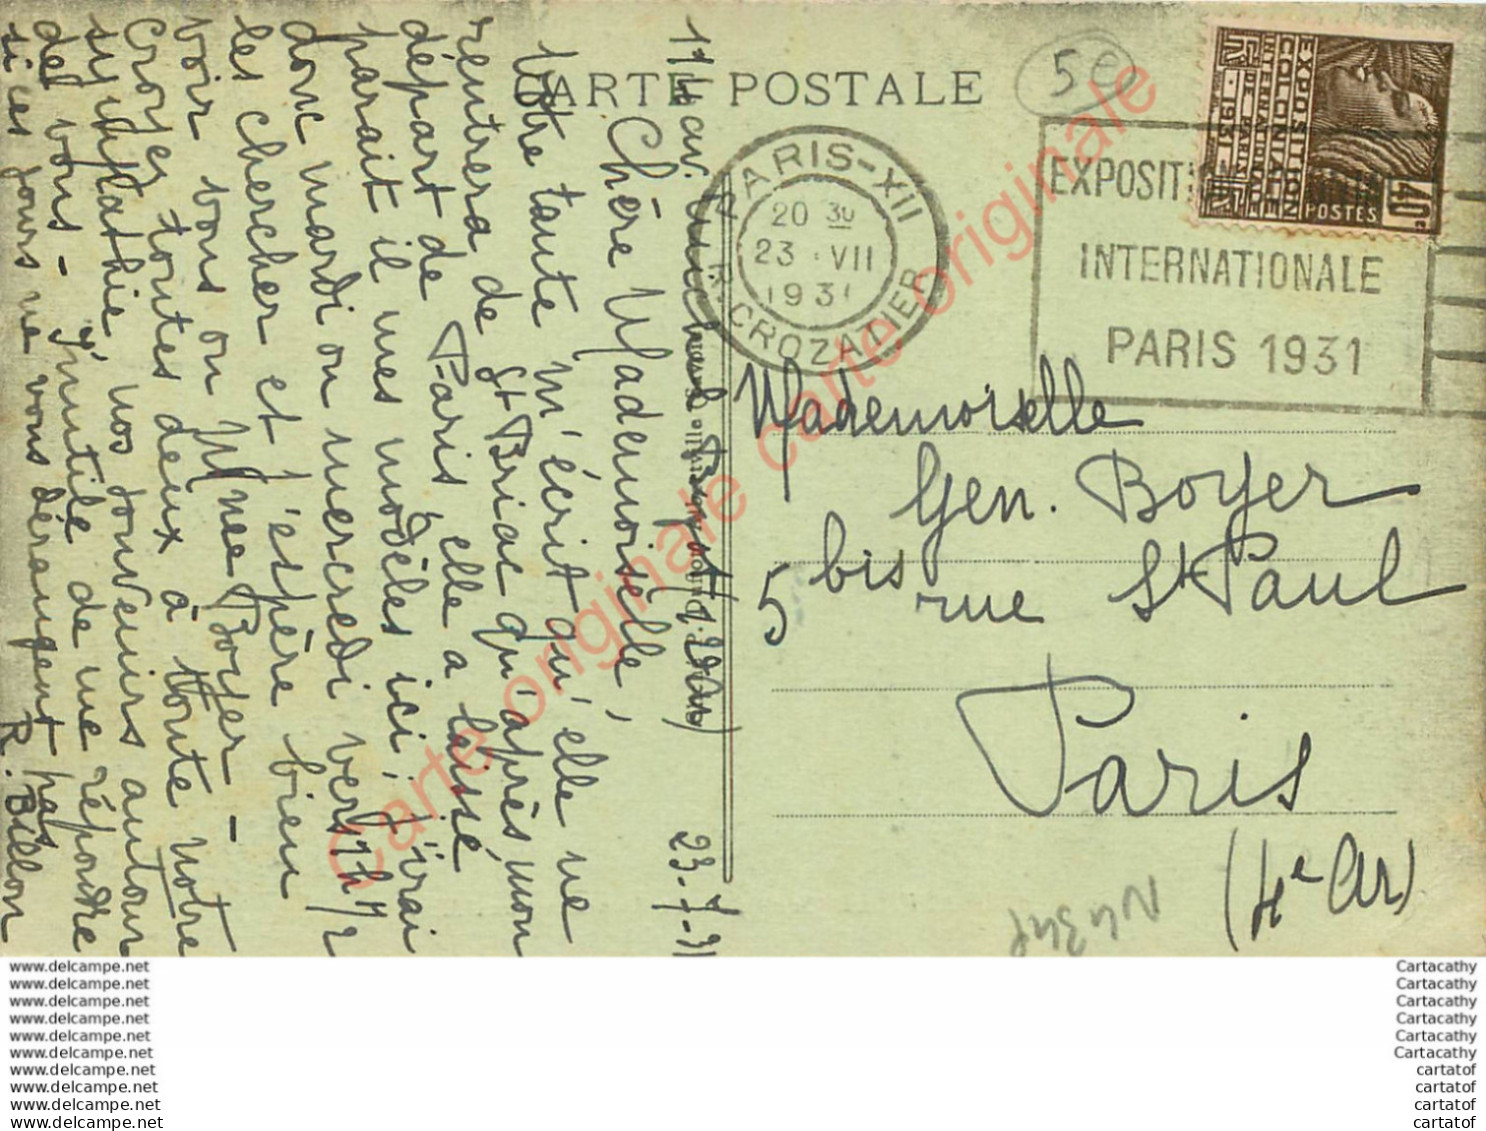 CARTE POSTALE
5e
PARIS-XII
20 30
23 VII
1931
R. CROZATIER
EXPOSITI
INTERNATIONALE
PARIS 1931
EXPOSITION
COLONIALE
INTERNATIONALE
DE PARIS
1931
POSTES
40c
Mademoiselle
Gen. Boyer
5 bis rue St Paul
Paris
(4e Ar)
23-7-31
Chère Mademoiselle,
Votre tante m'écrit qu'elle ne
rentrera de St Briac qu'après mon
départ de Paris, elle a laissé
parait il mes modèles ici, j'irai
donc mardi ou mercredi vers 1h 1/2
les chercher et j'espère bien
voir vous ou Mme Boyer -
Croyez toutes deux à toute notre
sympathie, nos souvenirs autour
del vous - Inutile de me répondre
si ces jours ne vous dérangent pas
R. Billon
Carte originale
Carte originale
www.delcampe.net
www.delcampe.net
www.delcampe.net
www.delcampe.net
www.delcampe.net
www.delcampe.net
www.delcampe.net
www.delcampe.net
www.delcampe.net
www.delcampe.net
Cartacathy
Cartacathy
Cartacathy
Cartacathy
Cartacathy
Cartacathy
cartatof
cartatof
cartatof
cartatof